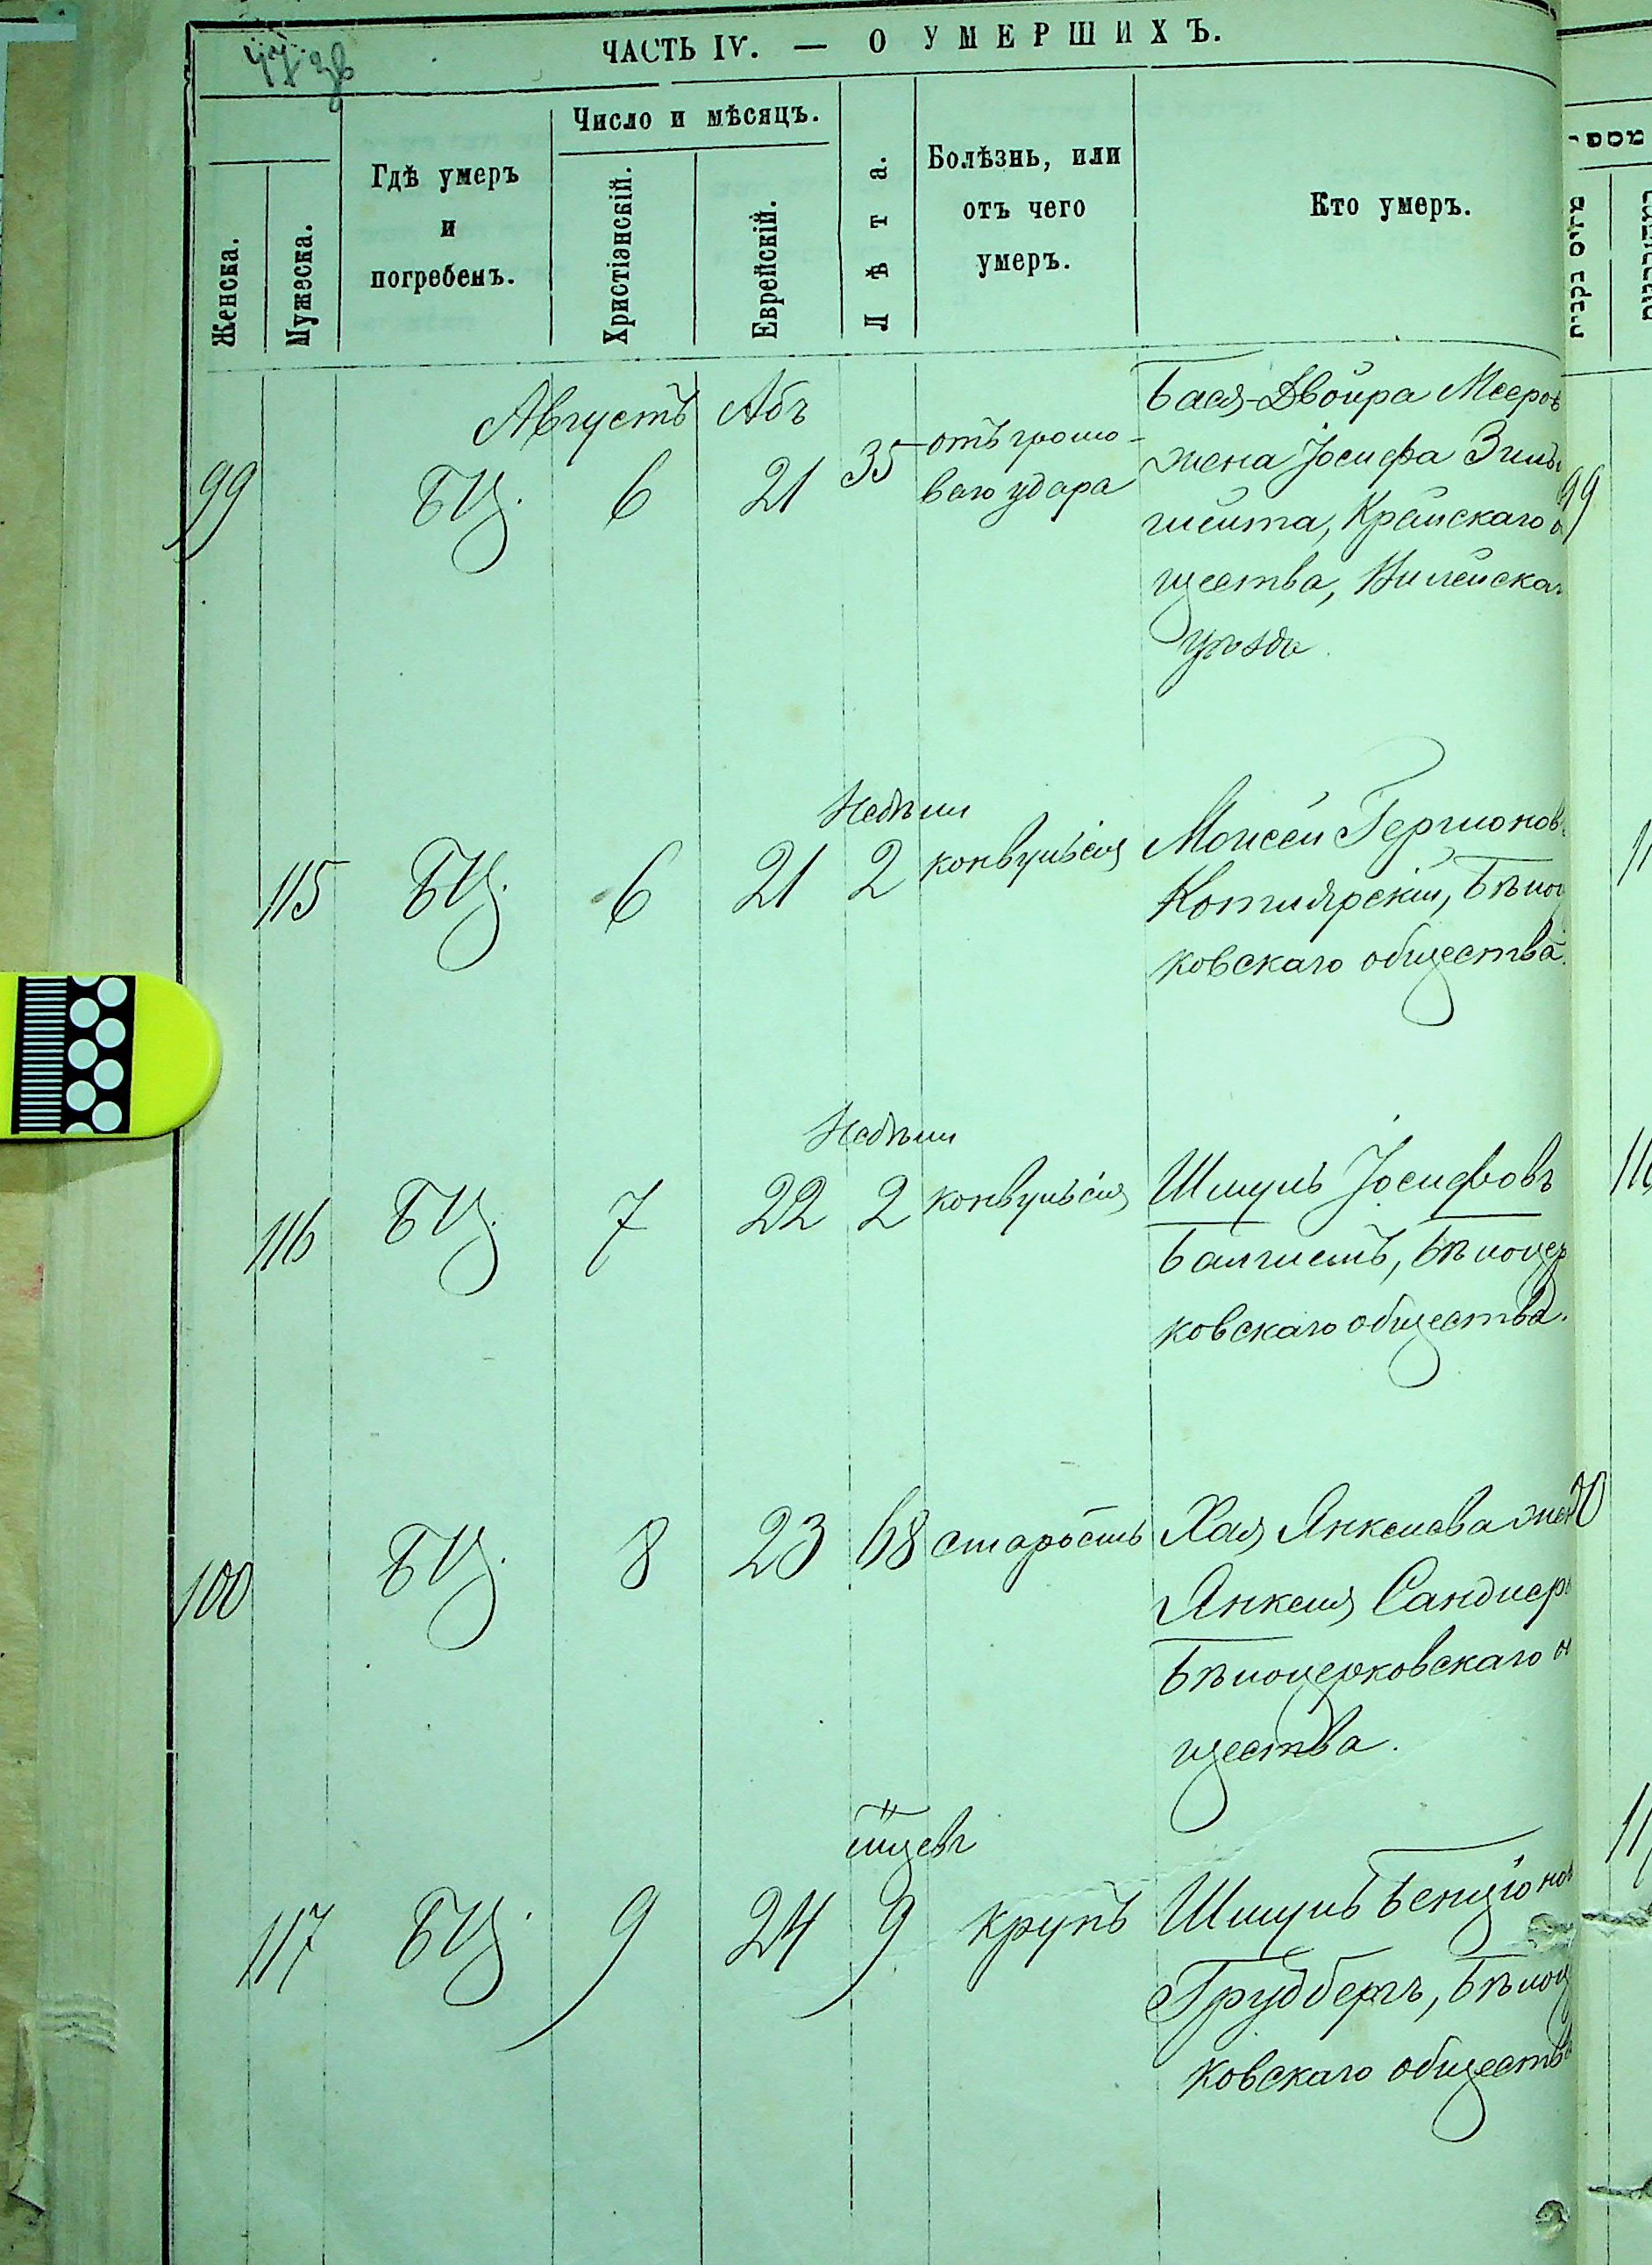 ЧАСТЬ IV. — О УМЕРШИХЪ.
Женска.
Мужеска.
Гдѣ умеръ
и
погребенъ.
Число и мѣсяцъ.
Христіэнскій.
Еврейскій.
Лѣта.
Болѣзнь, или
отъ чего
умеръ.
Кто умеръ.
מספ
Августъ Абъ
99 БЦ. 6 21 35 отъ громо-
ваго удара
Бася-Двойра Мееров
жена Іосифа
Крайскаго
щества, Вилейска
уѣзда.
Недѣли
115 БЦ. 6 21 2 конвульсія
Моисей Гершонов
Котлярскій, Бѣлоц
ковскаго общества.
Недѣли
116 БЦ. 7 22 2 конвульсія
Шмуль Іосифовъ
Бѣлоцер
ковскаго общества.
100 БЦ. 8 23 68 старость
Хая Янкелева жен
Янкеля Сандлер
Бѣлоцерковскаго
щества.
м-цевъ
117 БЦ. 9 24 9 крупъ
Шмуль Бенціонов
Грудбергъ, Бѣлоц
ковскаго обществ